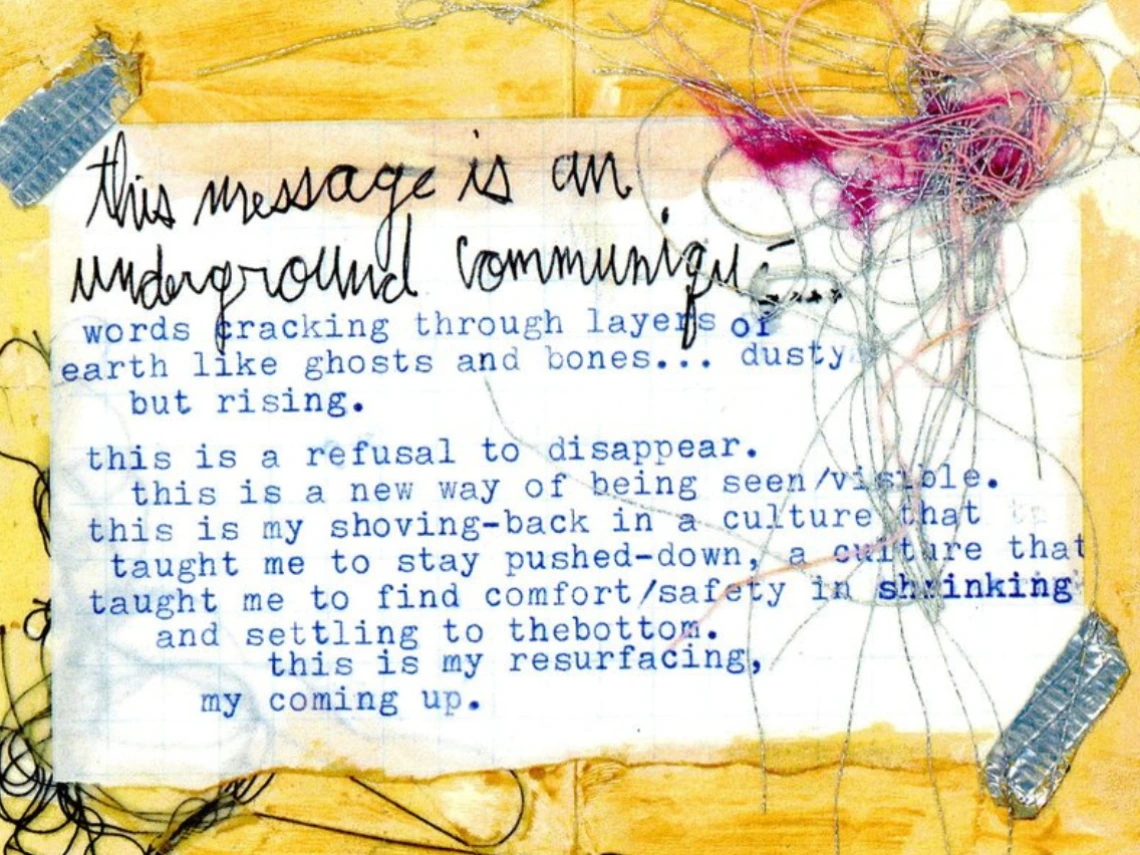 this message is an
underground communiqué...
words cracking through layers of
earth like ghosts and bones... dusty
but rising.
this is a refusal to disappear.
this is a new way of being seen/visible.
this is my shoving-back in a culture that
taught me to stay pushed-down, a culture that
taught me to find comfort/safety in shrinking
and settling to thebottom.
this is my resurfacing,
my coming up.